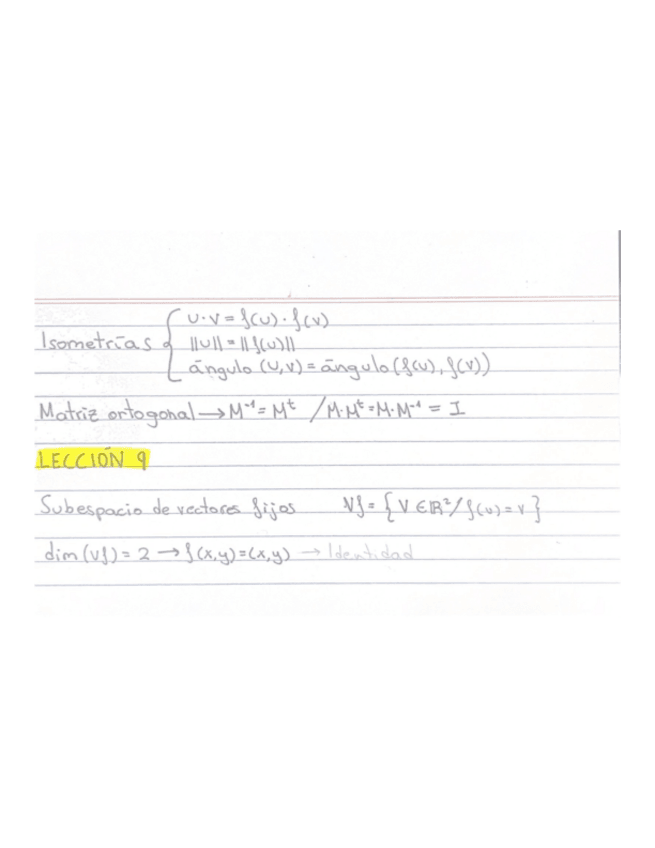 Isometrías { u·v = f(u)·f(v)
||u|| = ||f(u)||
ángulo (u,v) = ángulo (f(u), f(v))
Matriz ortogonal → M⁻¹ = Mᵗ / M·Mᵗ = M·M⁻¹ = I
LECCIÓN 9
Subespacio de vectores fijos Vf = {v ∈ ℝ² / f(v) = v}
dim (Vf) = 2 → f(x,y) = (x,y) → Identidad